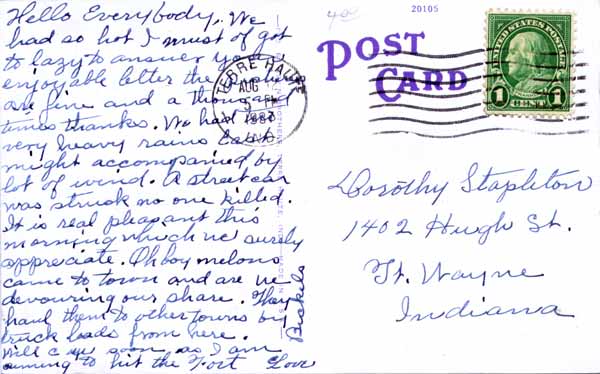 Hello Everybody. We
had so hot I must of got
to lazy to answer your
enjoyable letter the
are fine and a thousand
times thanks. We had
very heavy rains last
night accompanied by
lot of wind. A streetcar
was struck no one killed.
It is real pleasant this
morning which we surely
appreciate. Oh boy melons
came to town and are we
devouring our share. They
haul them to other towns by
truck loads from here.
Will soon as I am
to hit the Fort Love
Bickels
40
20105
POST
CARD
TERRE HAUTE
AUG
5
IND.
UNITED STATES POSTAGE
1 CENT 1
Dorothy Stapleton
1402 Hugh St.
Ft. Wayne
Indiana